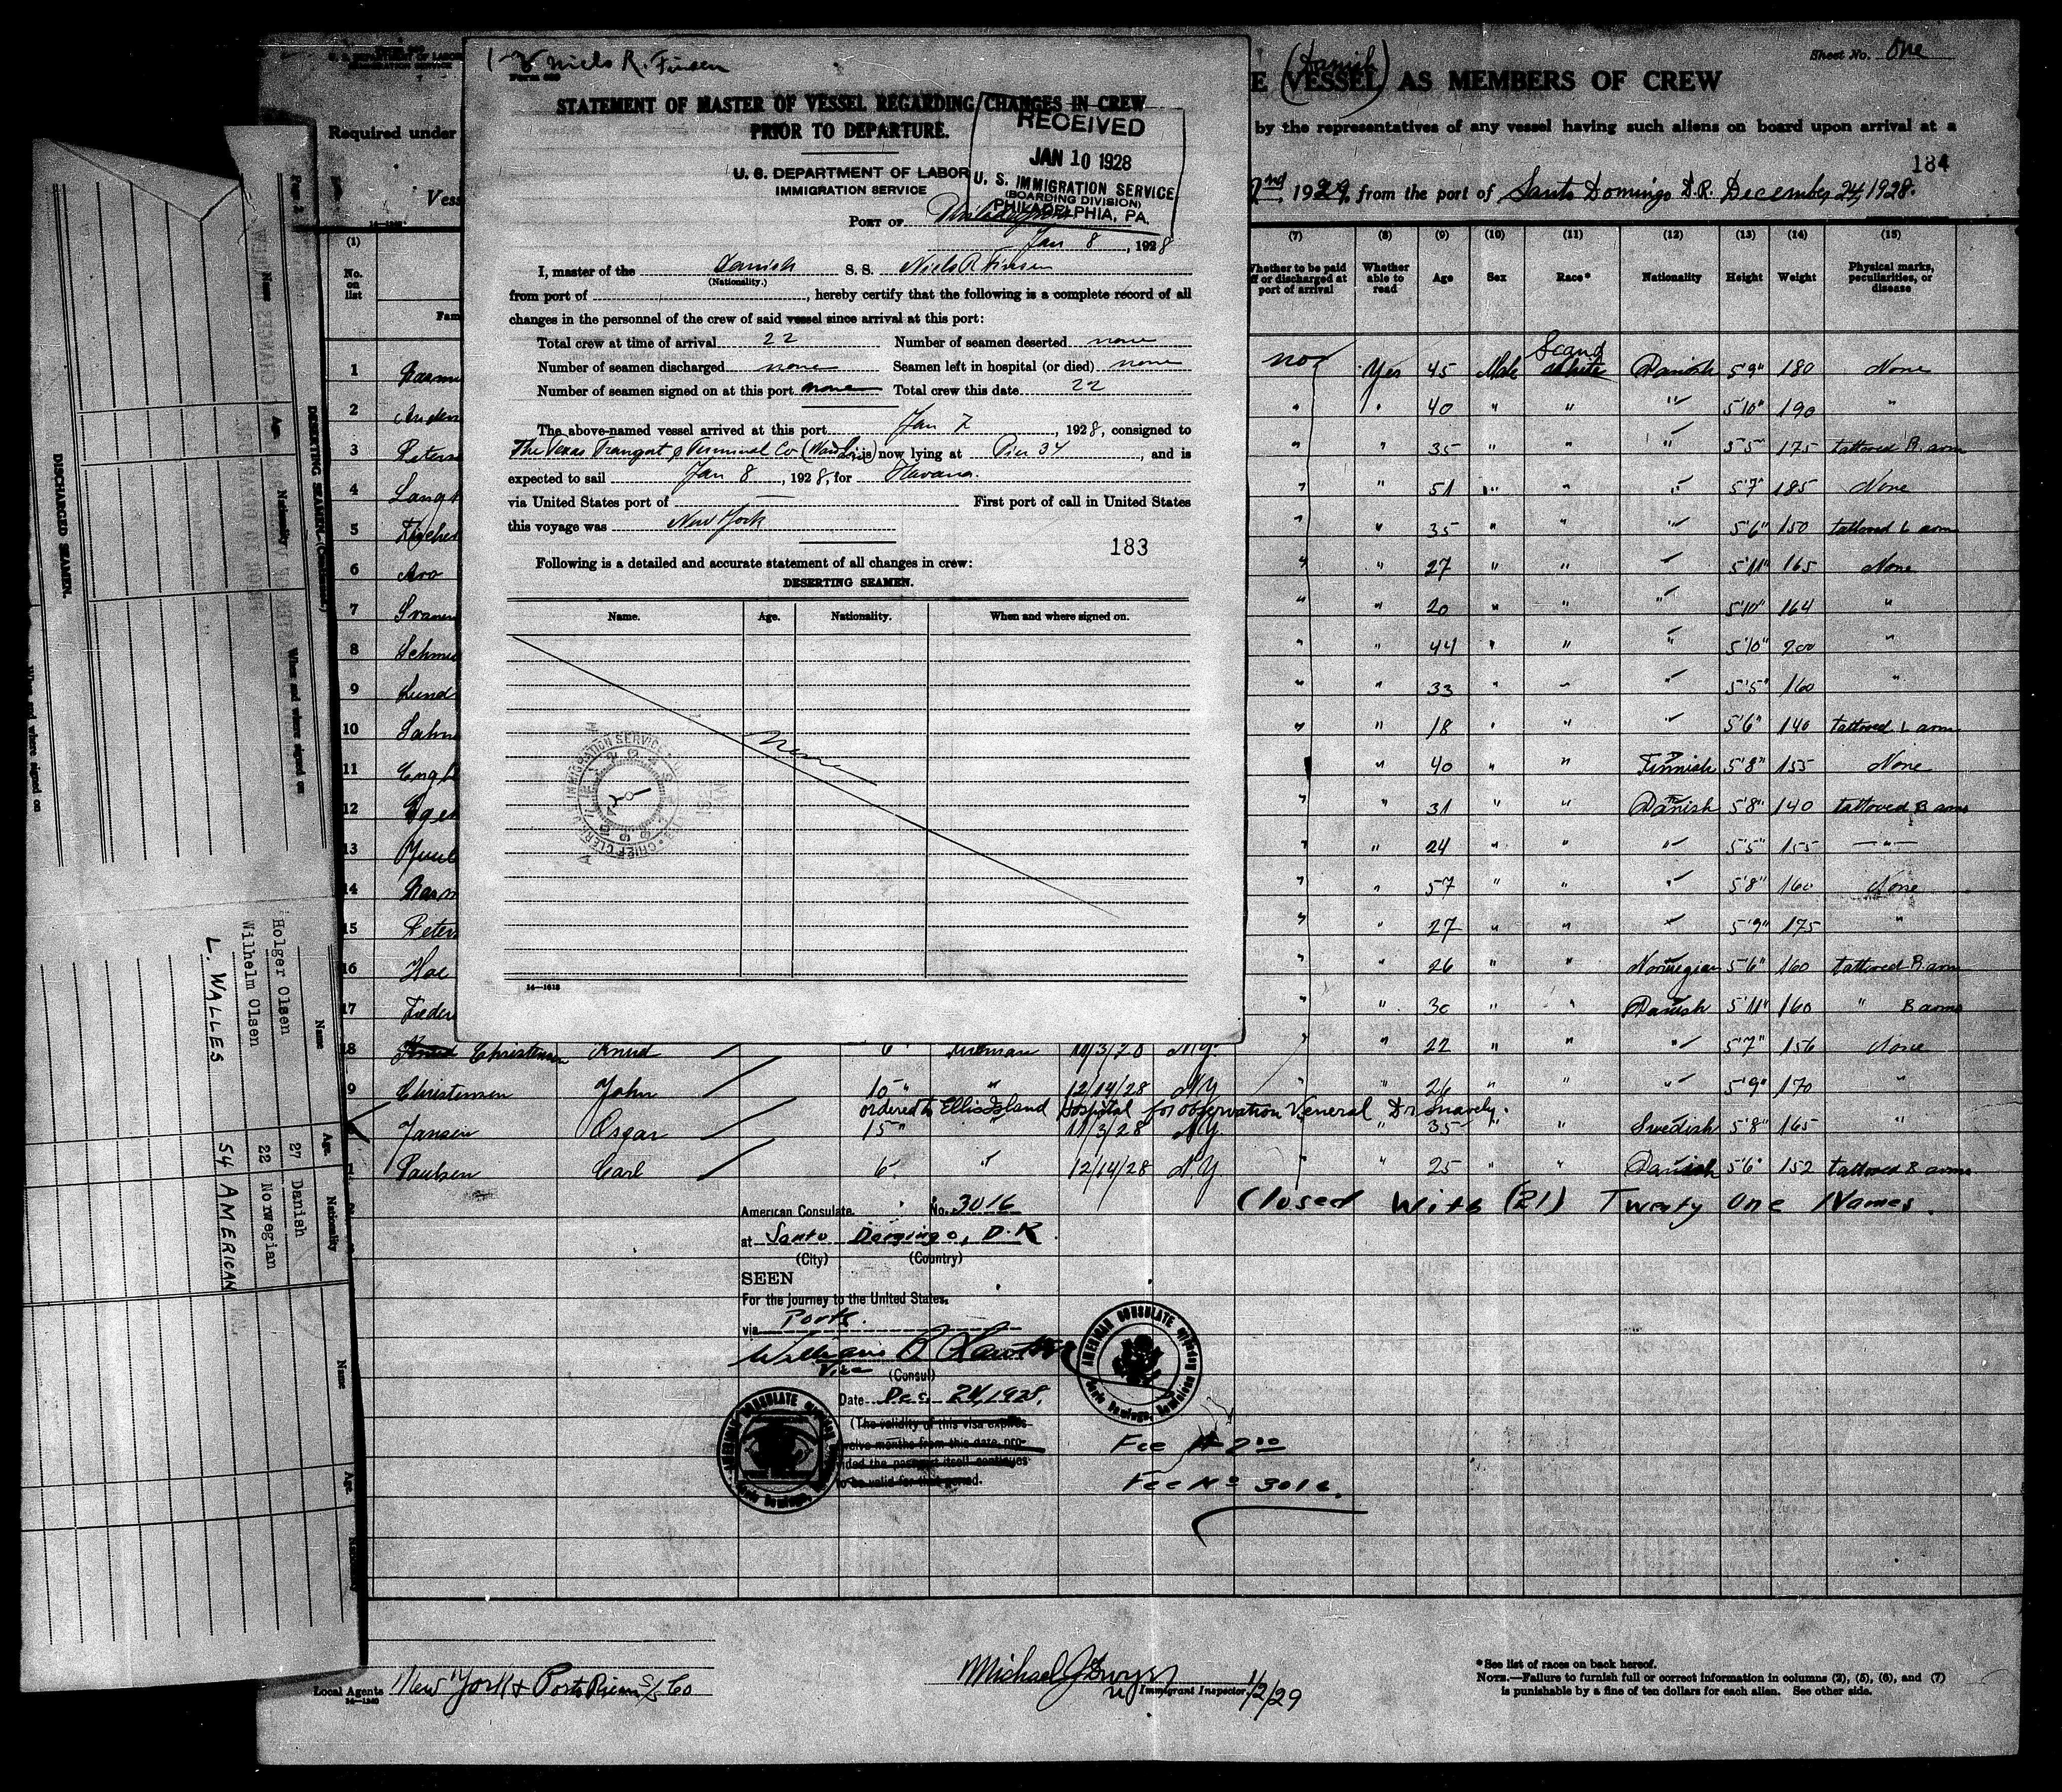 1-8 Niels R. Finsen
Form 689
STATEMENT OF MASTER OF VESSEL REGARDING CHANGES IN CREW
PRIOR TO DEPARTURE.
U. S. DEPARTMENT OF LABOR
IMMIGRATION SERVICE
RECEIVED
JAN 10 1928
U. S. IMMIGRATION SERVICE
(BOARDING DIVISION)
PHILADELPHIA, PA.
PORT OF Philadelphia
Jan 8, 1928
I, master of the Danish S. S. Niels R Finsen
(Nationality.)
from port of , hereby certify that the following is a complete record of all
changes in the personnel of the crew of said vessel since arrival at this port:
Total crew at time of arrival 22 Number of seamen deserted none
Number of seamen discharged none Seamen left in hospital (or died) none
Number of seamen signed on at this port none Total crew this date 22
The above-named vessel arrived at this port Jan 7, 1928, consigned to
The Texas Transport & Terminal Co (Ward Line) is now lying at Pier 34, and is
expected to sail Jan 8, 1928, for Havana.
via United States port of — First port of call in United States
this voyage was New York
183
Following is a detailed and accurate statement of all changes in crew:
DESERTING SEAMEN.
Name. Age. Nationality. When and where signed on.
None
IMMIGRATION SERVICE
CHIEF CLERK
14—1618
Sheet No. One
E (VESSEL) AS MEMBERS OF CREW
(Danish)
Required under
by the representatives of any vessel having such aliens on board upon arrival at a
184
Vess
2nd, 1929, from the port of Santo Domingo D.R. December 24, 1928.
(1) (7) (8) (9) (10) (11) (12) (13) (14) (15)
No. on list Fam Whether to be paid off or discharged at port of arrival Whether able to read Age Sex Race* Nationality Height Weight Physical marks, peculiarities, or disease
Scand
1 Rasmu no Yes 45 Male White Danish 5'9" 180 None
2 Anders " " 40 " " " 5'10" 190 "
3 Peters " " 35 " " " 5'5" 175 tattooed R. arm
4 Lang " " 51 " " " 5'7" 185 None
5 " " 35 " " " 5'6" 150 tattooed L arm
6 " " 27 " " " 5'11" 165 None
7 " " 20 " " " 5'10" 164 "
8 Schmi " " 44 " " " 5'10" 200 "
9 Lund " " 33 " " " 5'5" 160 "
10 " " 18 " " " 5'6" 140 tattooed L arm
11 Engb " 40 " " Finnish 5'8" 155 None
12 " " 31 " " Danish 5'8" 140 tattooed B arms
13 Juul " " 24 " " " 5'5" 155 "
14 Rasm " " 57 " " " 5'8" 160 None
15 Peters " " 27 " " " 5'9" 175 "
16 Hoe " " 26 " " Norwegian 5'6" 160 tattooed R. arm
17 Feder " " 30 " " Danish 5'11" 160 " B arms
18 Knud Christensen Knud 6 " Fireman 11/3/28 N.Y. " " 22 " " " 5'7" 156 None
19 Christensen John 10 " " 12/14/28 N.Y. " " 26 " " " 5'9" 170 "
ordered to Ellis Island Hospital for observation Veneral Dr Snavely.
Jansen Oscar 15 " " 11/3/28 N.Y. " 35 " " Swedish 5'8" 165 "
Paulsen Carl 6 " 12/14/28 N.Y. " " 25 " " Danish 5'6" 152 tattooed B arms
Closed With (21) Twenty One Names.
American Consulate. No. 3016
at Santo Domingo, D.R
(City) (Country)
SEEN
For the journey to the United States.
via Ports.
William
Vice (Consul)
Date Dec. 24, 1928.
(The validity of this visa expires
twelve months from this date, pro-
vided the passport itself continues
to be valid for that period.
AMERICAN CONSULATE Santo Domingo, Dominican Republic
AMERICAN CONSULATE Santo Domingo,
Fee $ 2.00
Fee No 3016.
Local Agents New York & Porto Rico S/S Co
14—1240
Michael J Gwynn
Immigrant Inspector 1/2/29
*See list of races on back hereof.
NOTE.—Failure to furnish full or correct information in columns (2), (5), (6), and (7)
is punishable by a fine of ten dollars for each alien. See other side.
Page 2
DESERTING SEAMEN—(Continued.)
Name Age. Nationality When and where signed on
DISCHARGED SEAMEN.
When and where signed on
Name Age. Nationality
Holger Olsen 27 Danish
Wilhelm Olsen 22 Norwegian
L. WALLES 54 AMERICAN
Name Age.